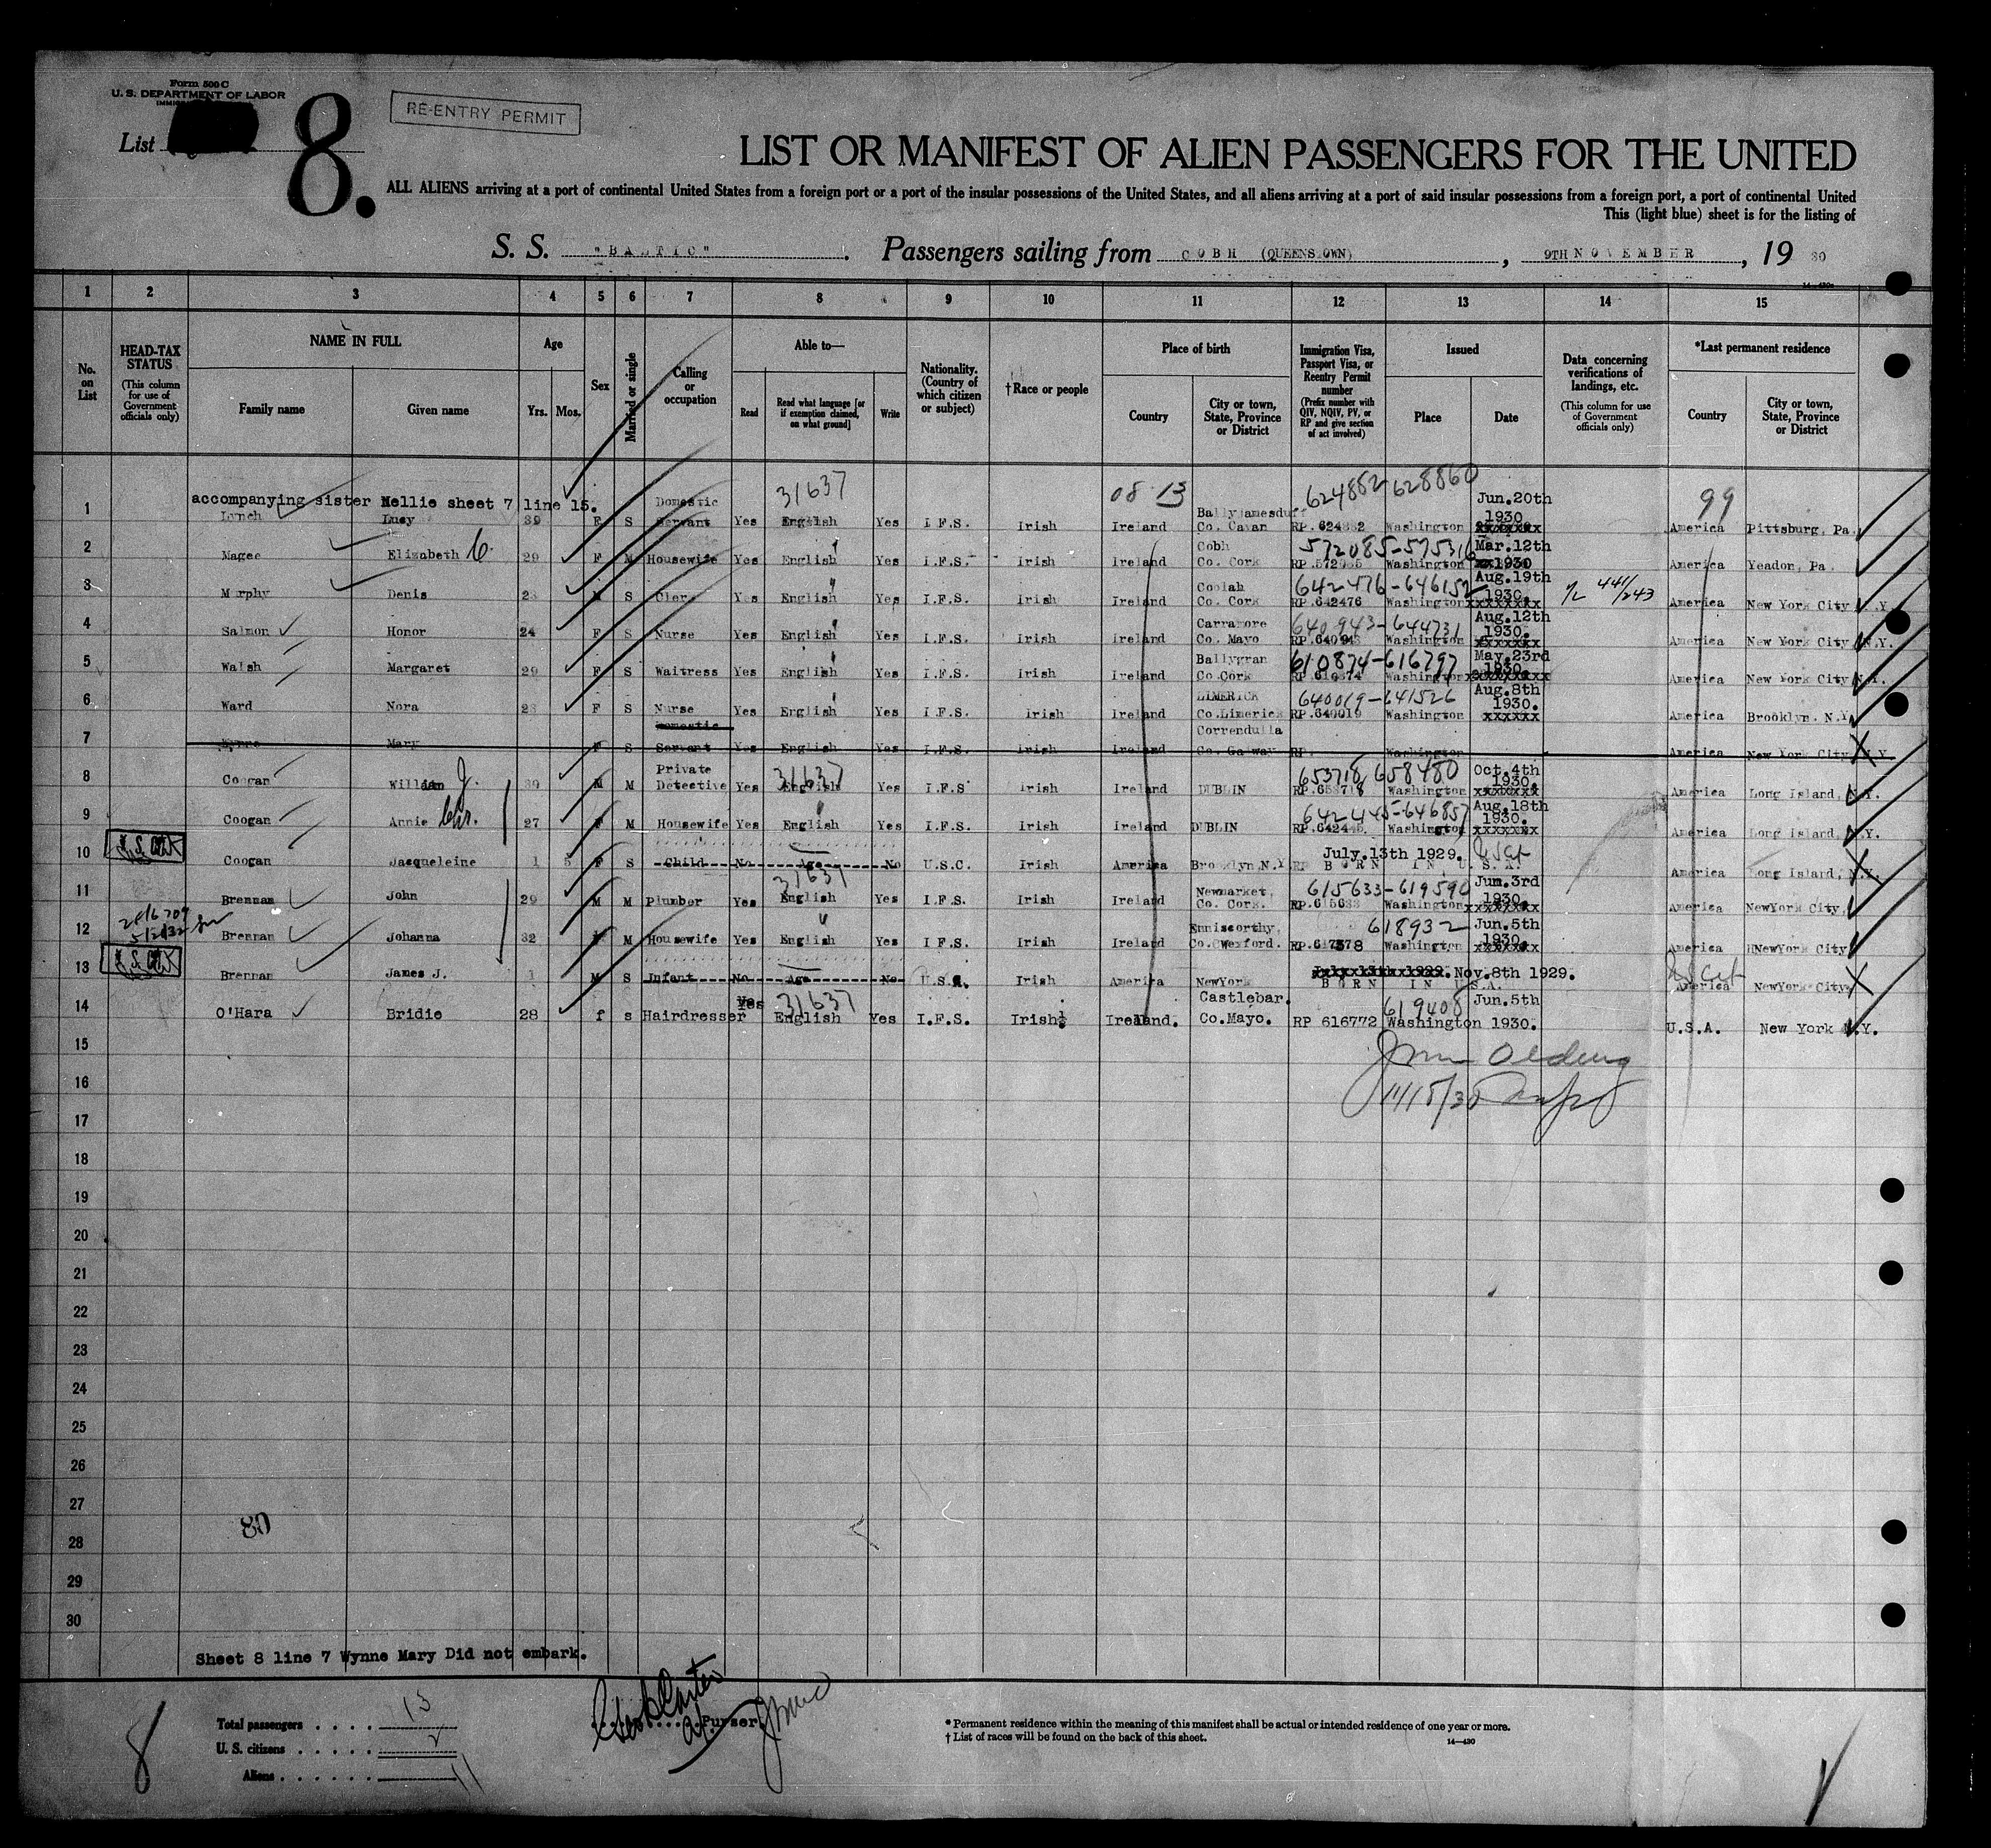 Form 500 C
U. S. DEPARTMENT OF LABOR
List
8.
RE-ENTRY PERMIT
LIST OR MANIFEST OF ALIEN PASSENGERS FOR THE UNITED
ALL ALIENS arriving at a port of continental United States from a foreign port or a port of the insular possessions of the United States, and all aliens arriving at a port of said insular possessions from a foreign port, a port of continental United
This (light blue) sheet is for the listing of
S. S. "BALTIC" . Passengers sailing from COBH (QUEENSTOWN) , 9TH NOVEMBER , 19 30
14—430
1 2 3 4 5 6 7 8 9 10 11 12 13 14 15
No. on List
HEAD-TAX STATUS (This column for use of Government officials only)
NAME IN FULL
Family name Given name
Age
Yrs. Mos.
Sex
Married or single
Calling or occupation
Able to—
Read Read what language [or if exemption claimed, on what ground] Write
Nationality. (Country of which citizen or subject)
†Race or people
Place of birth
Country City or town, State, Province or District
Immigration Visa, Passport Visa, or Reentry Permit number (Prefix number with QIV, NQIV, PV, or RP and give section of act involved)
Issued
Place Date
Data concerning verifications of landings, etc. (This column for use of Government officials only)
*Last permanent residence
Country City or town, State, Province or District
accompanying sister Nellie sheet 7 line 15.
31637 08 13 624882-628860 99
1 Lynch Lucy 39 F S Domestic Servant Yes English Yes I.F.S. Irish Ireland Ballyjamesduff Co. Cavan RP.624882 Washington Jun.20th 1930 xxxxxxx America Pittsburg, Pa.
2 Magee Elizabeth C. 29 F M Housewife Yes English Yes I.F.S. Irish Ireland Cobh Co. Cork 572085-575316 RP.572085 Washington Mar.12th 1930 America Yeadon, Pa.
3 Murphy Denis 23 M S Clerk Yes English Yes I.F.S. Irish Ireland Coolah Co. Cork 642476-646152 RP.642476 Washington Aug.19th 1930. xxxxxxxx 441/243 America New York City N.Y.
4 Salmon Honor 24 F S Nurse Yes English Yes I.F.S. Irish Ireland Carramore Co. Mayo 640943-644731 RP.640943 Washington Aug.12th 1930. xxxxxxx America New York City N.Y.
5 Walsh Margaret 29 F S Waitress Yes English Yes I.F.S. Irish Ireland Ballygran Co Cork 610874-616797 RP.610874 Washington May.23rd 1930. America New York City N.Y.
6 Ward Nora 28 F S Nurse Yes English Yes I.F.S. Irish Ireland LIMERICK Co.Limerick 640019-641526 RP.640019 Washington Aug.8th 1930. xxxxxx America Brooklyn. N.Y.
7 Wynne Mary F S Domestic Servant Yes English Yes I.F.S. Irish Ireland Correndulla Co. Galway RP. Washington America New York City N.Y.
8 Coogan William J. 30 M M Private Detective Yes 31637 English Yes I.F.S Irish Ireland DUBLIN 653718 658480 RP.653718 Washington Oct.4th 1930 xxxxxxx America Long Island, N.Y.
9 Coogan Annie 27 F M Housewife Yes English Yes I.F.S. Irish Ireland DUBLIN 642445-646857 RP.642445 Washington Aug.18th 1930. xxxxxxx America Long Island, N.Y.
10 Coogan Jacqueleine 1 5 F S Child No Age No U.S.C. Irish America Brooklyn.N.Y. July.13th 1929. BORN IN U.S.A. America Long Island, N.Y.
11 Brennan John 29 M M Plumber Yes 31637 English Yes I.F.S. Irish Ireland Newmarket, Co. Cork. 615633-619590 RP.615633 Washington Jun.3rd 1930. xxxxxxxx America NewYork City,
12 Brennan Johanna 32 F M Housewife Yes English Yes I.F.S. Irish Ireland Enniscorthy, Co. Wexford. 618932 RP.617378 Washington Jun.5th 1930. xxxxxxx America NewYork City
13 Brennan James J. 1 M S Infant No Age No U.S.C. Irish America NewYork Nov.8th 1929. BORN IN U.S.A. America NewYork City
14 O'Hara Bridie 28 f s Hairdresser Yes 31637 English Yes I.F.S. Irish Ireland. Castlebar. Co.Mayo. 619408 RP 616772 Washington Jun.5th 1930. U.S.A. New York N.Y.
15
11/18/30
16
17
18
19
20
21
22
23
24
25
26
27
80
28
29
30
Sheet 8 line 7 Wynne Mary Did not embark.
8
Total passengers . . . . 13
U. S. citizens . . . . . 2
Aliens . . . . . . 11
Purser
* Permanent residence within the meaning of this manifest shall be actual or intended residence of one year or more.
† List of races will be found on the back of this sheet.
14—430